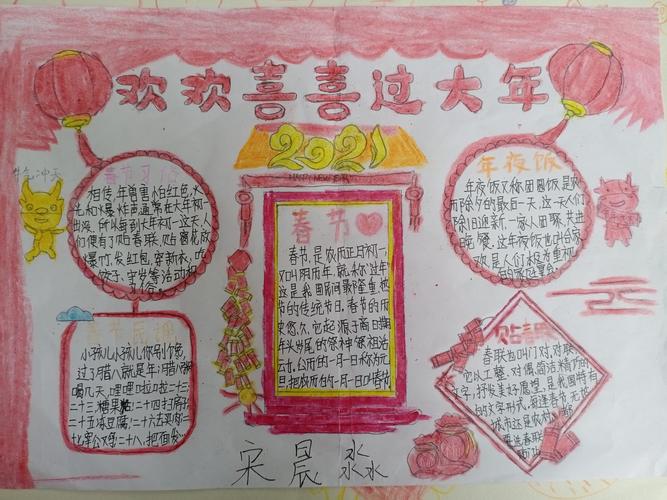 欢欢喜喜过大年
2021
HAPPY NEW YEAR
牛气冲天
春节习俗
相传,年兽害怕红色,火
光和爆炸声,通常在大年初一
出没,所以每到大年初一这天,人
们便有了贴春联、贴窗花、放
爆竹、发红包、穿新衣、吃
饺子、守岁等活动和
习俗。
年夜饭
年夜饭又称团圆饭是农
历除夕的最后一天,这一天人们
除旧迎新,一家人团聚,共进
晚餐。这年夜饭也叫合家
欢,是人们极为重视
的家庭宴会。
春节
春节,是农历正月初一,
又叫阴历年,就称"过年"
这是我国民间最隆重、最热
节的传统节日。春节的历
史悠久,它起源于商日期
年头岁尾的祭神祭祖活
动,公历的一月一日称为元
旦,把农历的一月一日叫春节
春节民谣
小孩儿小孩儿你别馋,
过了腊八就是年;腊八粥
喝几天,哩哩啦啦二十三;
二十三,糖果粘;二十四扫房子
二十五冻豆腐;二十六去买肉;二
十七宰公鸡;二十八,把面发
贴春联
春联也叫门对、对联
它以工整、对偶、简洁、精巧的
文字,抒发美好愿望,是我国特有
的文字形式,每逢春节,无论
城市还是农村,
要选春联
宋晨淼